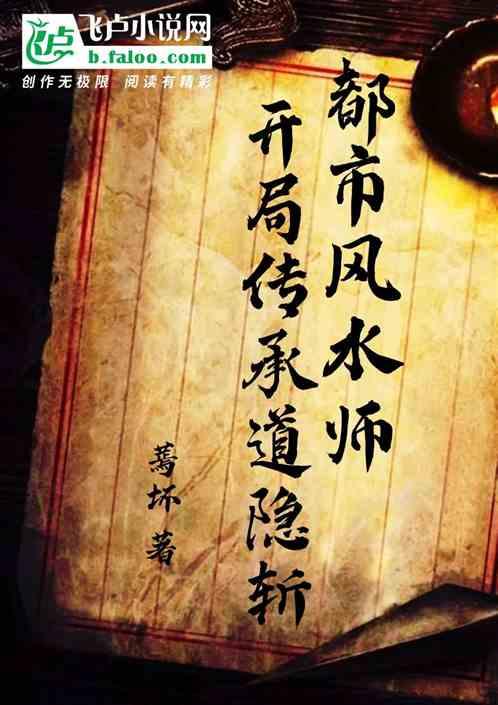 飞卢小说网
b.faloo.com
创作无极限 阅读有精彩
都市风水师
开局传承道隐斩
蔫坏 著